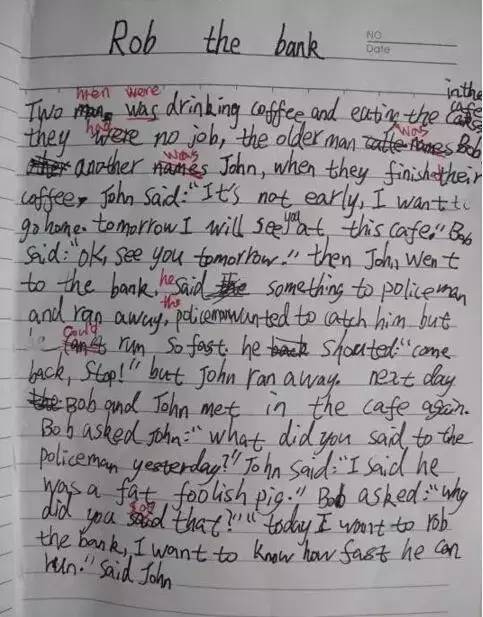 Rob the bank
NO.
Date
men were in the cafe
Two man was drinking coffee and eating the cakes
had was
they were no job, the older man names Bob
was
another names John, when they finished their
coffee, John said: "It's not early, I want to
you
go home. tomorrow I will see at this cafe." Bob
said: "ok, see you tomorrow." then John went
he
to the bank. said something to policeman
the
and ran away, policeman wanted to catch him but
could
can't run so fast. he back shouted: "come
back, stop!" but John ran away. next day
the Bob and John met in the cafe again.
Bob asked John: "what did you said to the
policeman yesterday?" John said: "I said he
was a fat foolish pig." Bob asked: "why
say
did you said that?" "today I want to rob
the bank, I want to know how fast he can
run." said John